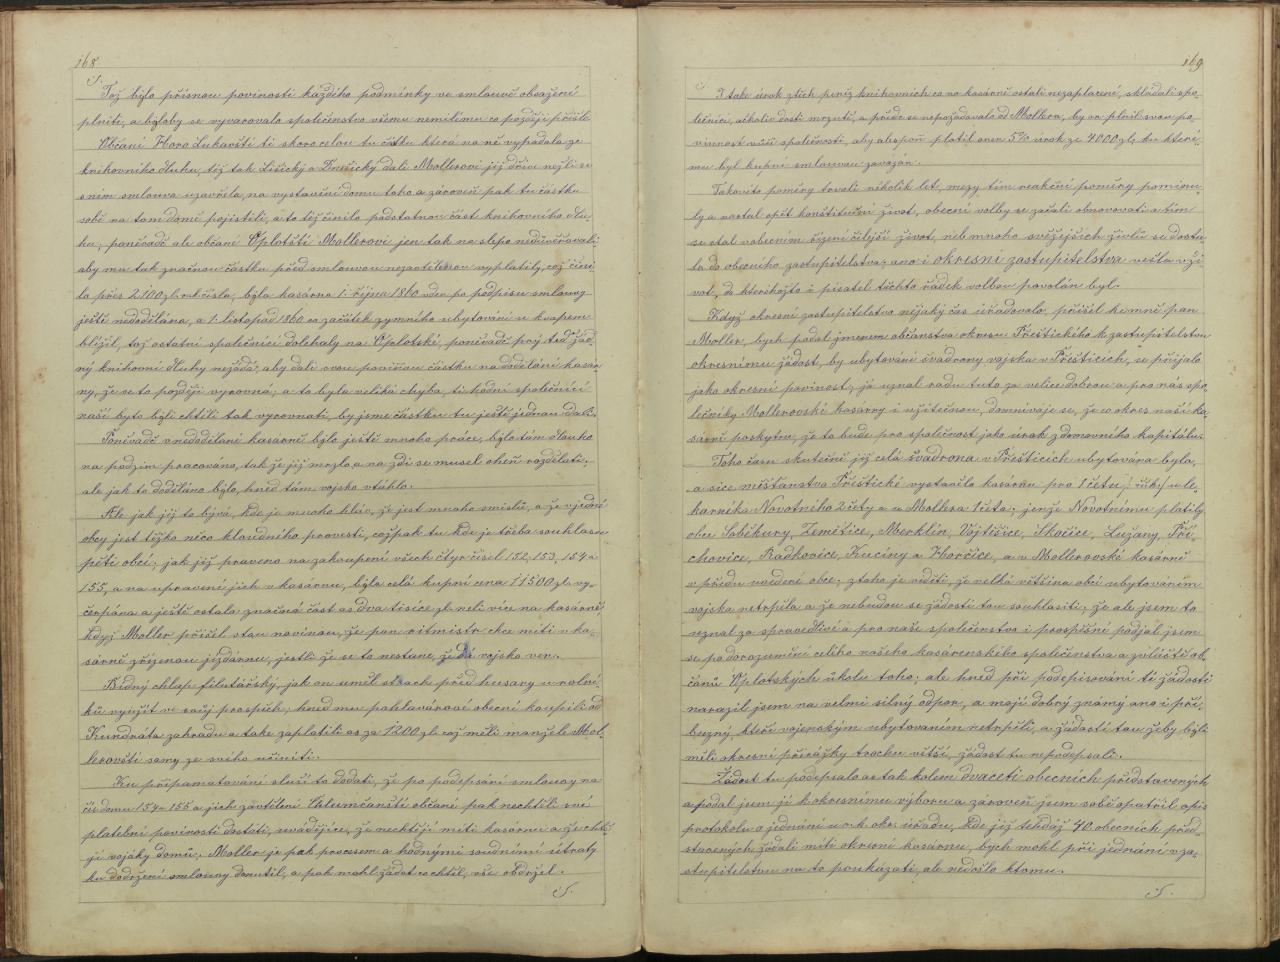 168.
Tož bylo přísnou povinosti každého podmínky ve smlouvě obsažené
plniti, a byloby se vyvarovalo společenstvo všemu nemilému co později přišlo
Občané Horo Lukavští ti skoro celou tu částku která na ně vypadala ze
knihovního dluhu, též tak Lišický a Dnešický dali Mollerovi již dříve nežli se
sním smlouva uzavřela, na vystavění domu toho a zároveň pak tu částku
sobě na tom domě pojistili, a to též činilo podstatnou část knihovního dlu
hu, poněvadž ale občané Oplotští Mollerovi jen tak na slepo nedůvěřovali
aby mu tak značnou částku před smlouvou vyplatily, což čini
lo přes 2100 zl. rak. čísla, byla kasárna 1. října 1860 co den po podpisu smlouvy
ještě nedodělána, a 1. listopad 1860 co začátek zymního ubytování se kvapem
blížil, tož ostatní společníci doléhaly na Oplotské, poněvadž prý teď žád
ný knihovní dluhy nežádá, aby dali svou povinou částku na dodělání kasár
ny, že se to později vyrovná; a to byla veliká chyba, ti hodní společníci
naši byto byli chtěli tak vyrovnati, by jsme částku tu ještě jednou dali.
Poněvadž v nedodělané kasárně bylo ještě mnoho práce, bylo tam dlouho
na podzim pracováno, tak že již mrzlo, a na zdi se musel oheň rozdělati,
ale jak to doděláno bylo, hned tam vojsko vtáhlo.
Ale jak již to bývá, kde je mnoho hlav, že jest mnoho smislů, a že v jedné
obcy jest těžko něco kloudného provesti, cožpak tu kde je třeba souhlasu
pěti obcí; jak již praveno na zakoupení všech čtyr čísel 152, 153, 154 a
155, a na upravení jich v kasárnu, byla celá kupní cena 11500 zl. vy-
čerpána a ještě ostala značná část as dva tisíce zl. neli více na kasárně
když Moller přišel stou novinou, že pan ritmistr chce míti v ka-
sárně zřízenou jízdárnu, jestli že se to nestane, že dá vojsko ven.
Bídný chlap filutářský, jak on uměl strach před husary u rolní-
ků využít ve svůj prospěch; hned mu pohlavárové obecní koupili od
Kundráta zahradu a take zaplatili as za 1200 zl. což měli manžele Mol-
lerovští samy ze svého učiniti.
Ku připamatování sluší to dodati, že po podepsání smlouvy na
čís domu 154–155 a jich zavtělení občané pak nechtěli své
platební povinosti dostáti, uvádějíce, že nechtějí míti kasárnu a že chtě
jí vojáky domů; Moller je pak procesem a hodnými soudními útraty
ku dodržení smlouvy donutil, a pak mohl žádat co chtěl, vše obdržel.
169
I také úrok ztěch peněz knihovních co na kasárně ostali nezaplacené, skládali spo-
lečníci, ačkoliv dosti mrzuti, a přede se nepožadovalo od Mollera, by on plnil svou po-
vinnost vůči společnosti, aby alespoň platil onen 5% úrok ze 4000 zl., ku které-
mu byl kupní smlouvou zavázán.
Takovéto poměry trvali několik let, mezy tím reakční poměry pominu
ly a nastal opět konštituční život, obecní volby se začali obnovovati a tím
se stal v obecním řízení čilejší život, neb mnoho svěžejších živlů se dosta-
lo do obecního zastupitelstva; ano i okresní zastupitelstva vešla v ži
vot, do kteréhožto i pisatel těchto řádek volbou povolán byl.
Když okresní zastupitelstvo nějaký čas úřadovalo, přišel ke mně pan
Moller, bych podal jmenem občanstva okresu Přeštického k zastupitelstvu
okresnímu žádost, by ubytování švadrony vojska v Přešticích, se přijalo
jako okresní povinost; já uznal radu tuto za velice dobrou a pro nás spo-
lečníky Mollerovské kasárny i užitečnou, domnívaje se, že co okres naší ka-
sárni poskytne, že to bude pro společnost jako úrok z domovního kapitálu.
Toho času skutečně již celá švadrona v Přešticích ubytována byla,
a sice měšťanstvo Přeštické vystavilo kasárnu pro 1 četu, u le-
karníka Novotného 2 čety a u Mollera 1 četa; jenže Novotnému platily
obce Soběkury, Zemětice, Merklín, Vojtěšice, Skočice, Lužany, Pří-
chovice, Radkovice, Kucíny a Horčice, a v Mollerovské kasárně
v předu uvedené obce; ztoho je viděti, že velké většina obcí ubytováním
vojska netrpěla a že nebudou se žádostí tou souhlasiti; že ale jsem to
uznal za spravedlivé a pro naše společenstvo i prospěšné podjal jsem
se po dorozumění celého našeho kasárenského společenstva a zvláště ob-
čanů Oplotských úkolu toho; ale hned při podepisování té žádosti
narazil jsem na velmi silný odpor, a moji dobrý známý ano i pří-
buzný, kteří vojenským ubytováním netrpěli, a žádostí tou žeby byli
měli okresní přirážky trochu větší, žádost tu nepodepsali.
Žádost tu podepsalo as tak kolem dvaceti obecních představených
a podal jsem jí k okresnímu výboru a zároveň jsem sobě opatřil opis
protokolu o jednání u c. k. okr. úřadu, kde již tehdáž 40 obecních před-
stavených žádali míti okresní kasárnu, bych mohl při jednání v za-
stupitelstvu na to poukázati, ale nedošlo ktomu.